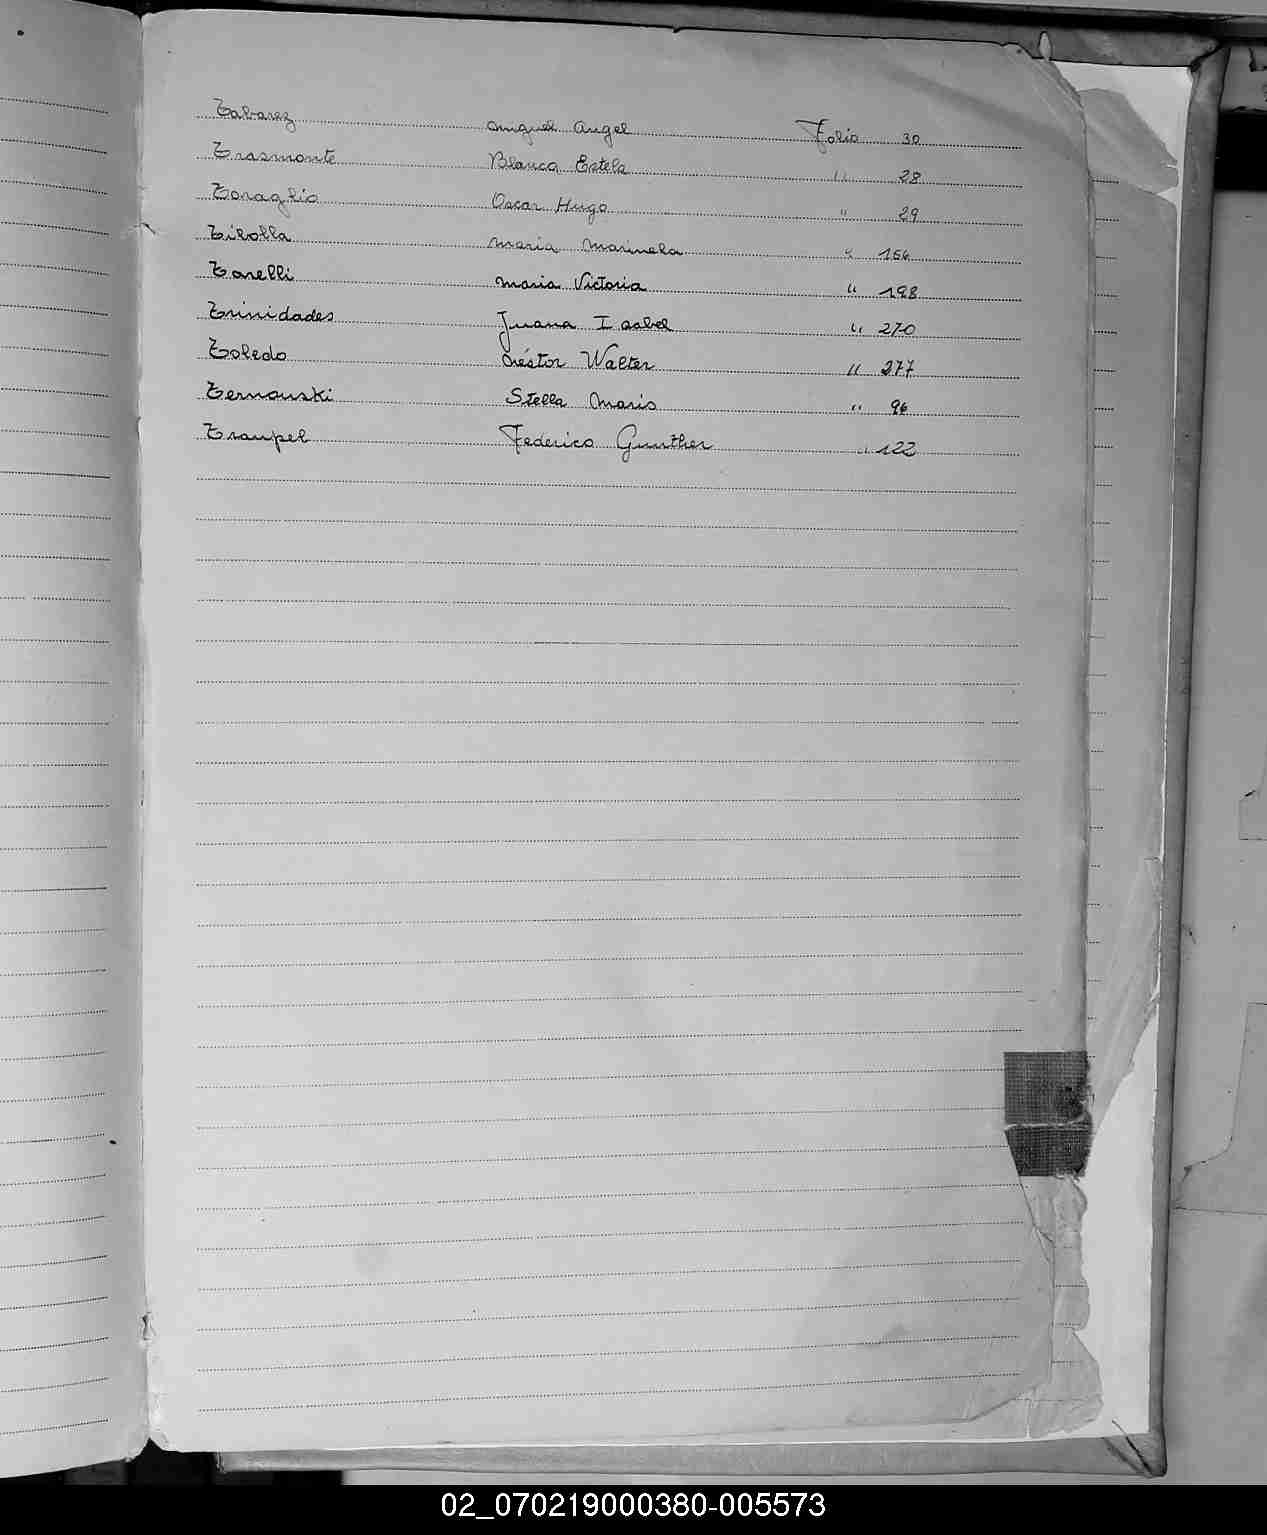 Tabarez Miguel Angel Folio 30
Trasmonte Blanca Estela " 28
Toraglio Oscar Hugo " 29
Tibolla Maria Marinela " 156
Tarelli Maria Victoria " 198
Trinidades Juana Isabel " 270
Toledo Néstor Walter " 277
Ternouski Stella Maris " 96
Traupel Federico Gunther " 122
02_070219000380-005573